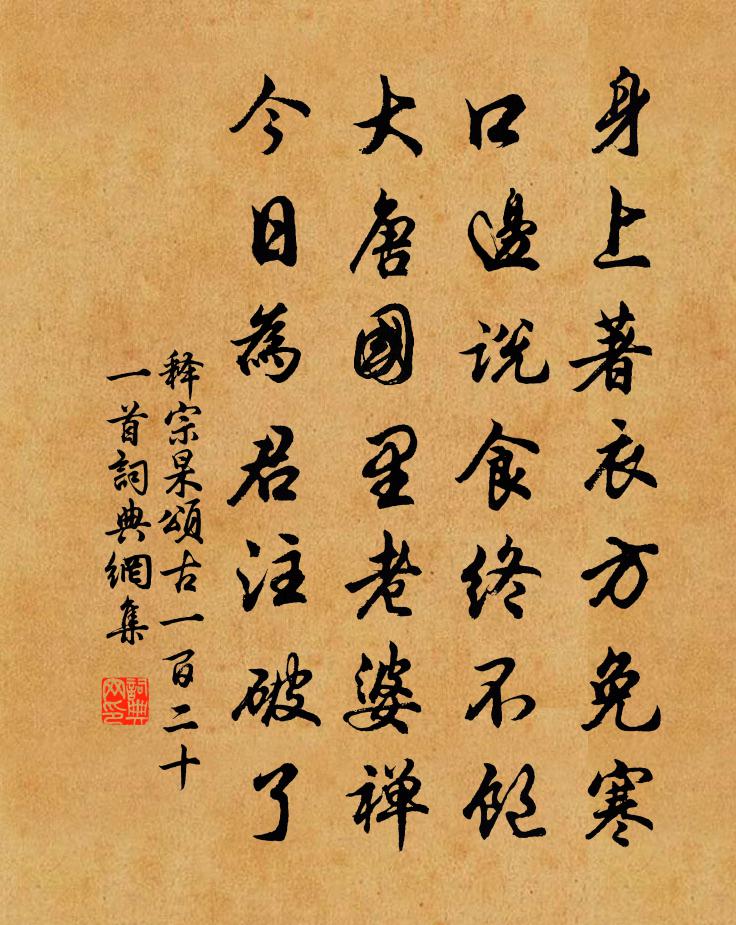 身上著衣方免寒
口邊説食終不飽
大唐國里老婆禅
今日為君注破了
释宗杲頌古一百二十
一首詞典網集
詞典
网印